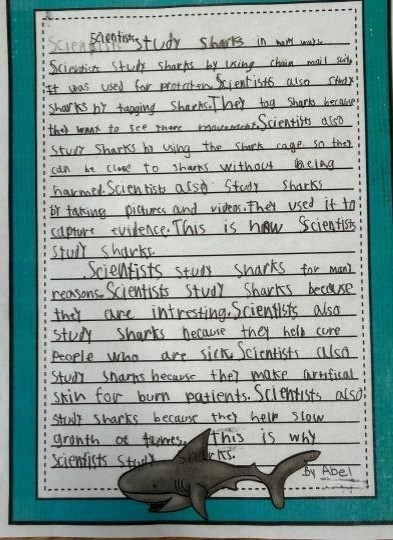 Scientists study sharks in many ways.
Scientists study sharks by using chain mail suits
It was used for Scientists also study
sharks by tagging sharks. They tag sharks because
they want to see there movement. Scientists also
study sharks by using the shark cage so they
can be close to sharks without being
harmed. Scientists also study sharks
by taking pictures and videos. They used it to
capture evidence. This is how Scientists
study sharks.
Scientists study sharks for many
reasons. Scientists study sharks because
they are intresting. Scientists also
study sharks because they help cure
people who are sick. Scientists also
study sharks because they make artifical
skin for burn patients. Scientists also
study sharks because they help slow
growth of . This is why
scientists study sharks.
By Abel